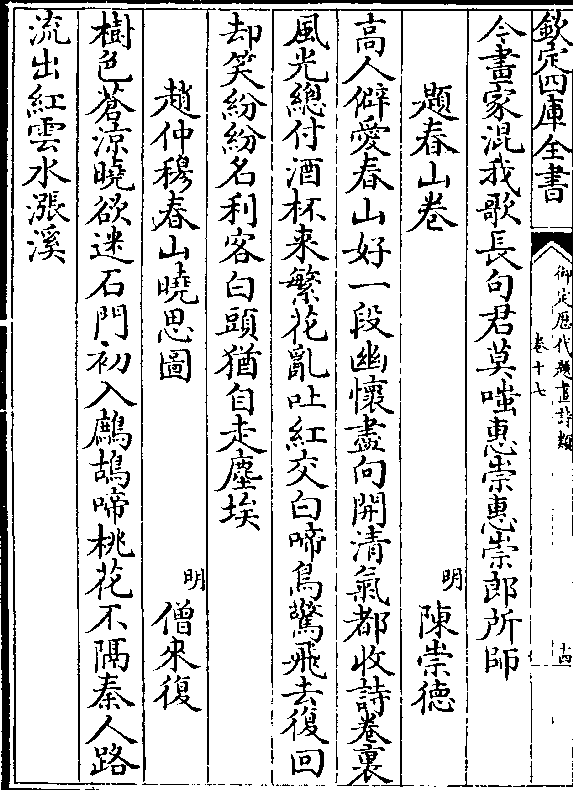 欽定四庫全書
御定歷代題畫詩類
卷十七
十四
今畫家混我歌長句君莫嗤惠崇惠崇郎所師
題春山卷
明
陳崇德
高人僻愛春山好一段幽懷盡向開清氣都收詩卷裏
風光總付酒杯来繁花亂吐紅交白啼鳥驚飛去復回
却笑紛紛名利客白頭猶自走塵埃
趙仲穆春山曉思圖
明
僧來復
樹色蒼凉曉欲迷石門初入鷓鴣啼桃花不隔秦人路
流出紅雲水漲溪